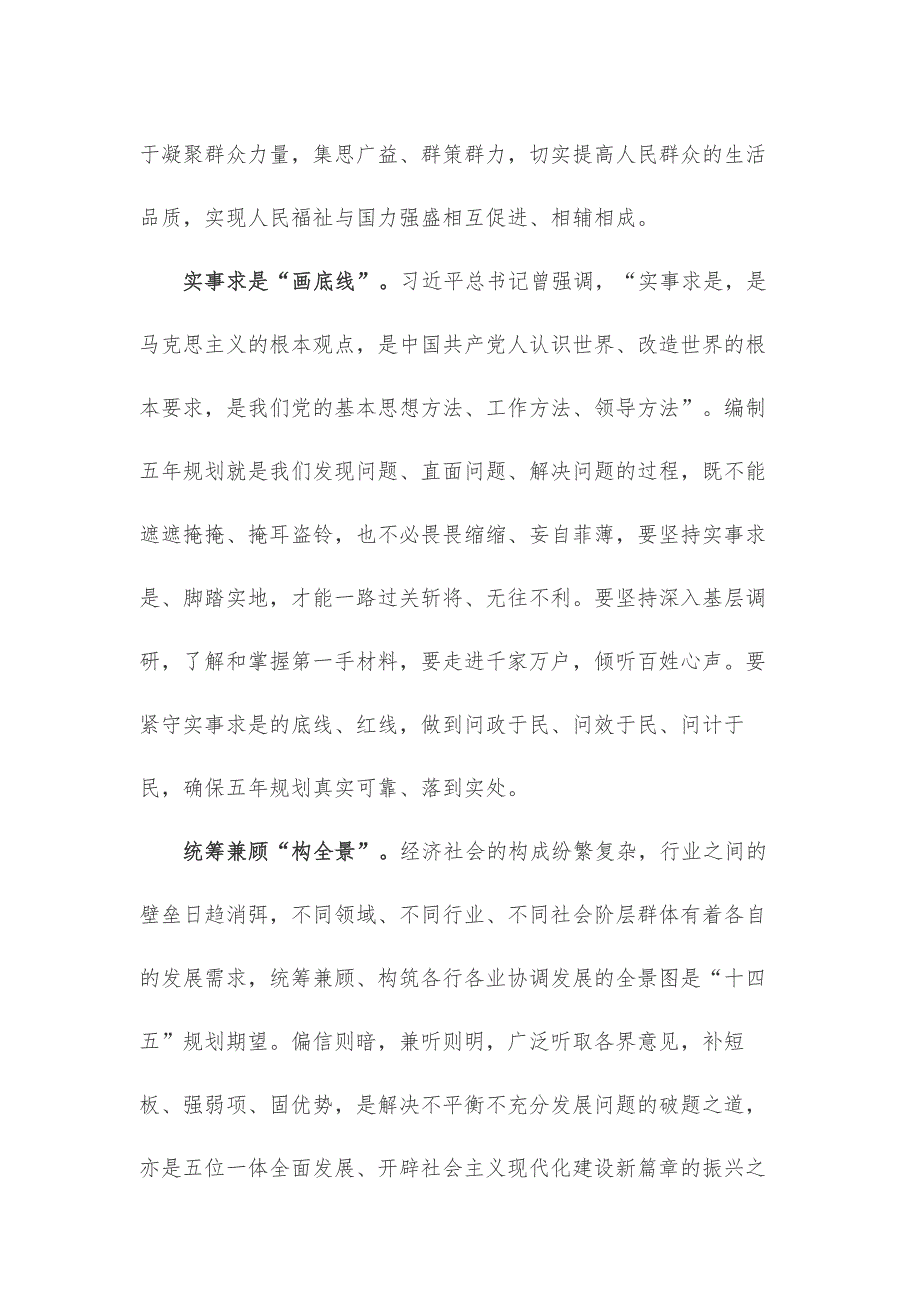 于凝聚群众力量，集思广益、群策群力，切实提高人民群众的生活
品质，实现人民福祉与国力强盛相互促进、相辅相成。
实事求是“画底线”。习近平总书记曾强调，“实事求是，是
马克思主义的根本观点，是中国共产党人认识世界、改造世界的根
本要求，是我们党的基本思想方法、工作方法、领导方法”。编制
五年规划就是我们发现问题、直面问题、解决问题的过程，既不能
遮遮掩掩、掩耳盗铃，也不必畏畏缩缩、妄自菲薄，要坚持实事求
是、脚踏实地，才能一路过关斩将、无往不利。要坚持深入基层调
研，了解和掌握第一手材料，要走进千家万户，倾听百姓心声。要
紧守实事求是的底线、红线，做到问政于民、问效于民、问计于
民，确保五年规划真实可靠、落到实处。
统筹兼顾“构全景”。经济社会的构成纷繁复杂，行业之间的
壁垒日趋消弭，不同领域、不同行业、不同社会阶层群体有着各自
的发展需求，统筹兼顾、构筑各行各业协调发展的全景图是“十四
五”规划期望。偏信则暗，兼听则明，广泛听取各界意见，补短
板、强弱项、固优势，是解决不平衡不充分发展问题的破题之道，
亦是五位一体全面发展、开辟社会主义现代化建设新篇章的振兴之